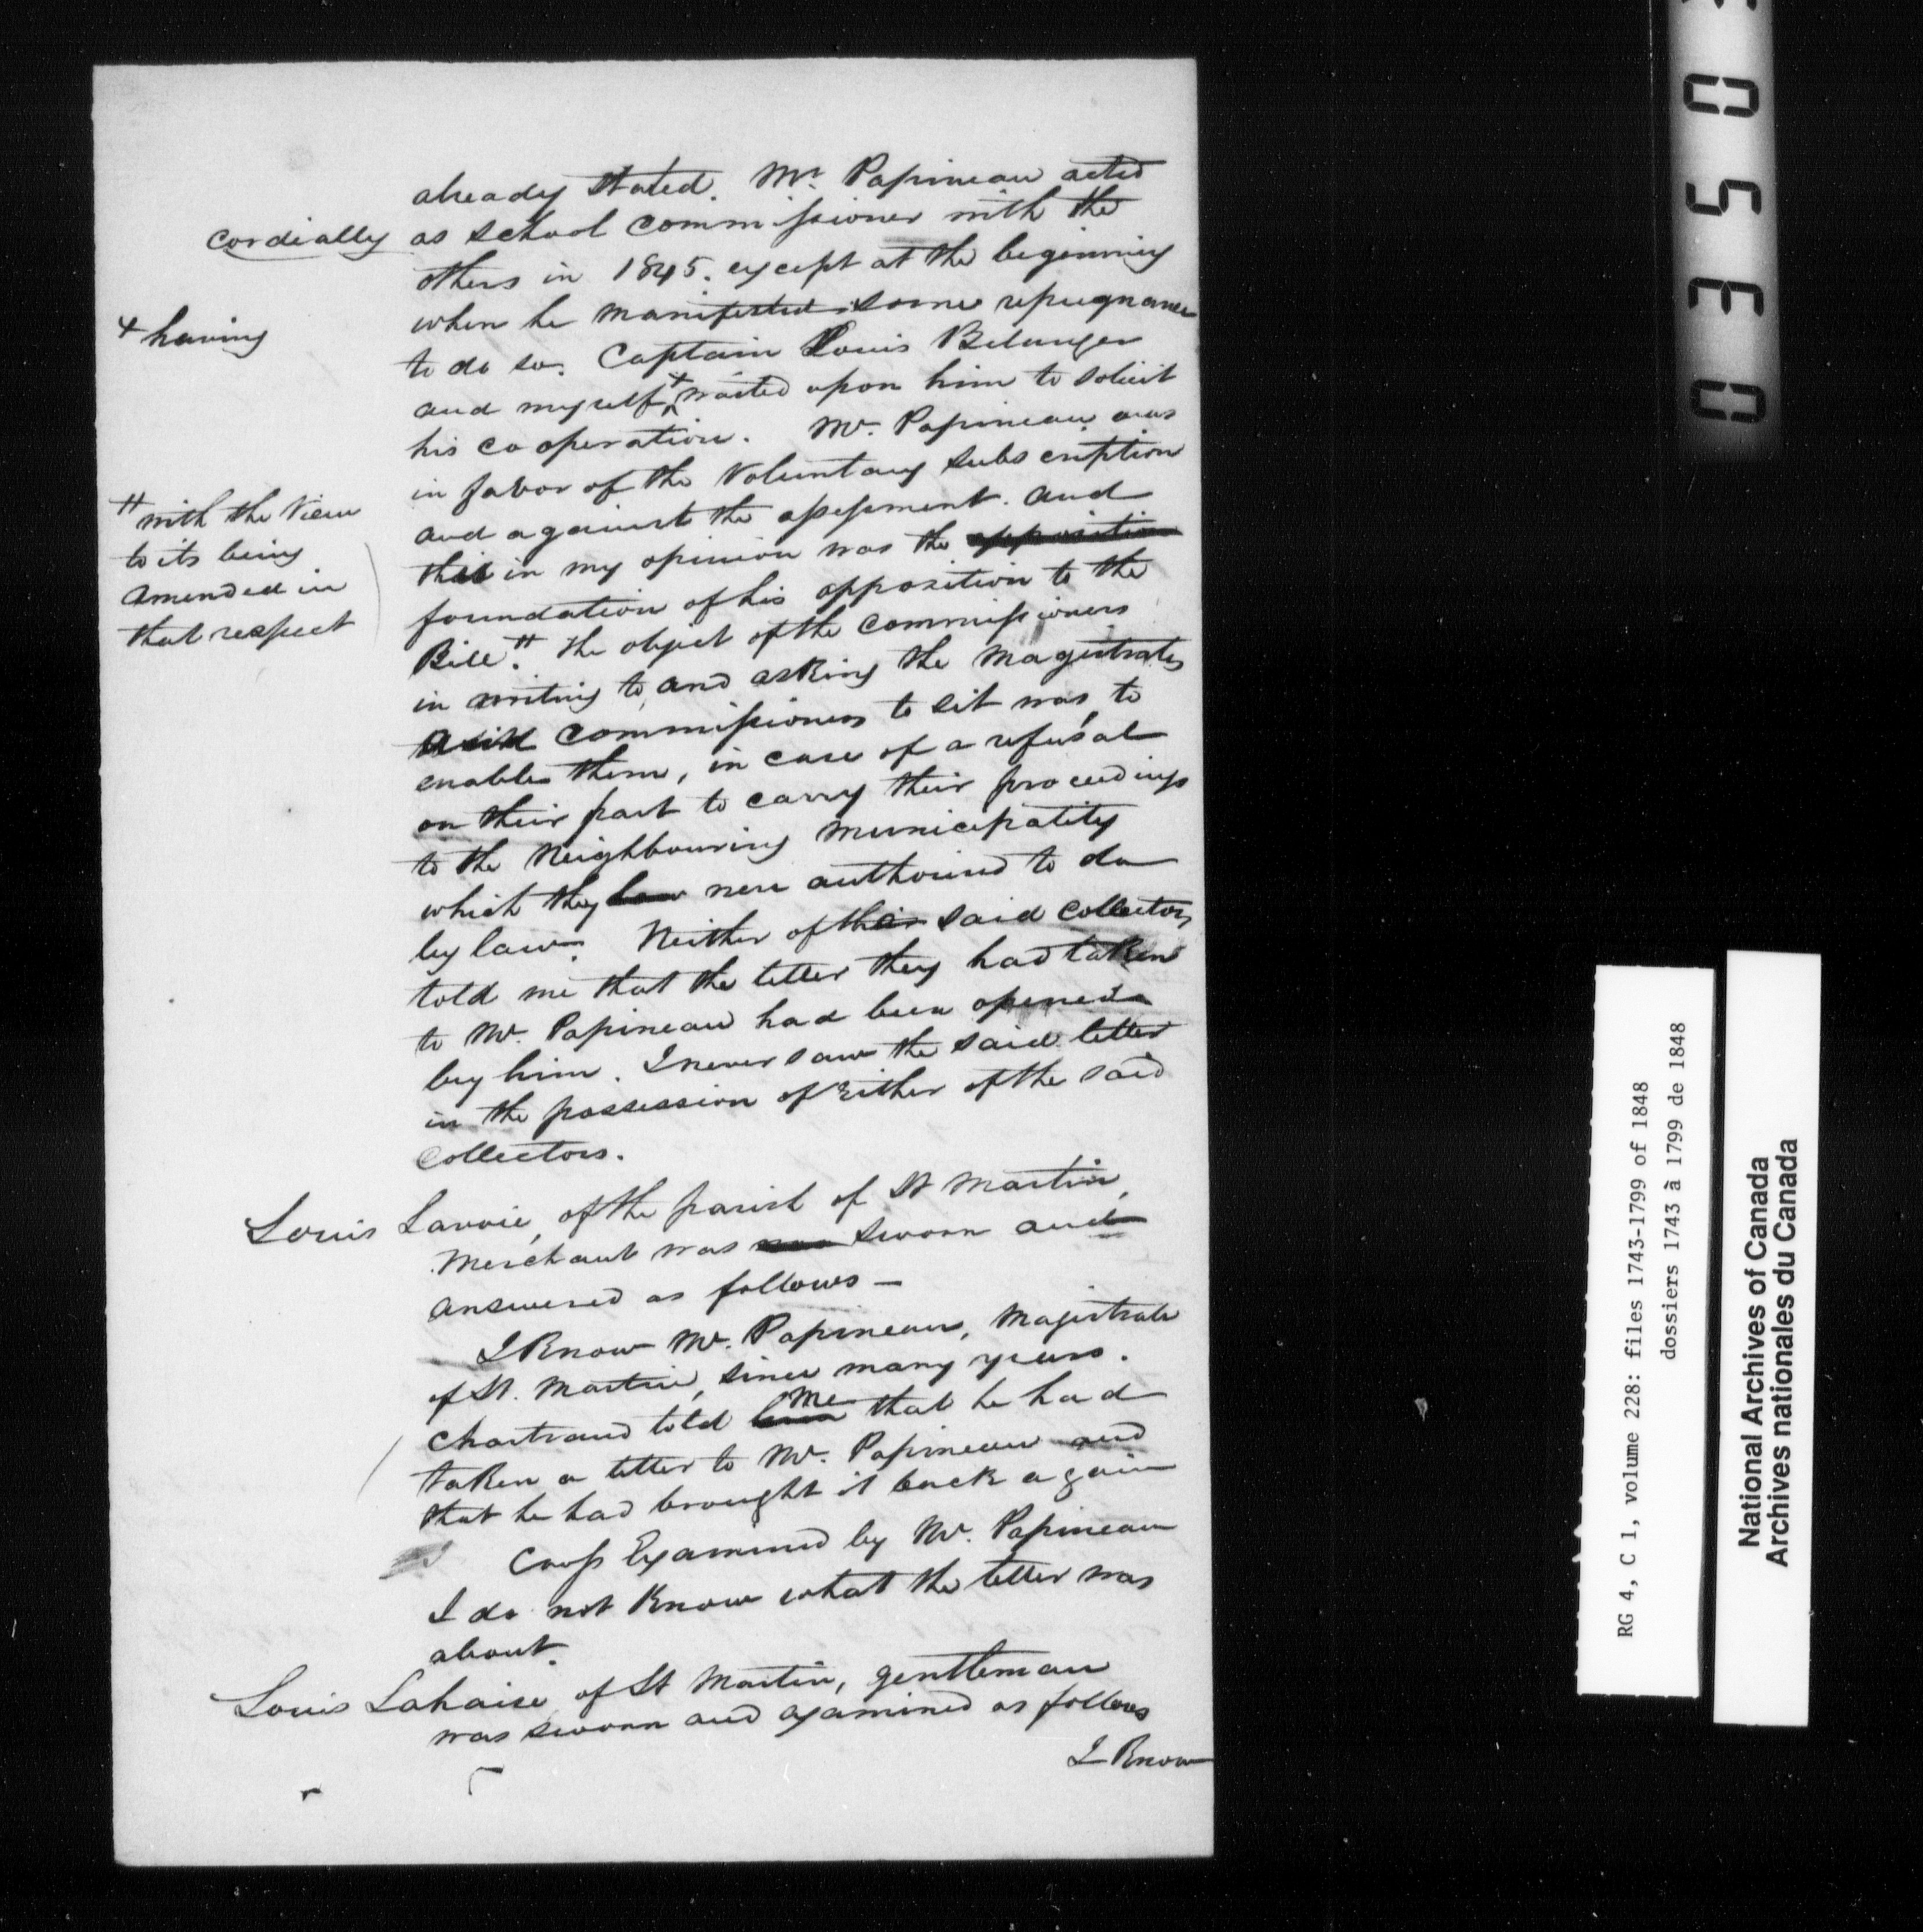 already stated. Mr. Papineau acted
cordially as school commissioner with the
others in 1845. except at the beginning
when he manifested some repugnance
+ having
to do so. Captain Louis Belanger
and myself + waited upon him to solicit
his co operation. Mr. Papineau was
in favor of the Voluntary subscription
and against the assessment. and
this in my opinion was the opposition
foundation of his opposition to the
Bill. # The object of the commissioners
# with the View
to its being
amended in
that respect
in writing to, and asking the magistrates
commissioners to sit was to
enable them, in case of a refusal
on their part to carry their proceedings
to the Neighbouring Municipality
which they were authorised to do
by law. Neither of the said collectors
told me that the letter they had taken
to Mr. Papineau had been opened
by him. I never saw the said letter
in the possession of Either of the said
Collectors.
Louis Lavoie, of the parish of St Martin,
Merchant was sworn and
answered as follows —
I Know Mr. Papineau, Magistrate
of St. Martin, since many years.
Chartrand told me that he had
taken a letter to Mr. Papineau and
that he had brought it back again
Cross Examined by Mr. Papineau
I do not Know what the letter was
about.
Louis Lahaise of St Martin, gentleman
was sworn and examined as follows
I Know
0350
RG 4, C 1, volume 228: files 1743-1799 of 1848
dossiers 1743 à 1799 de 1848
National Archives of Canada
Archives nationales du Canada